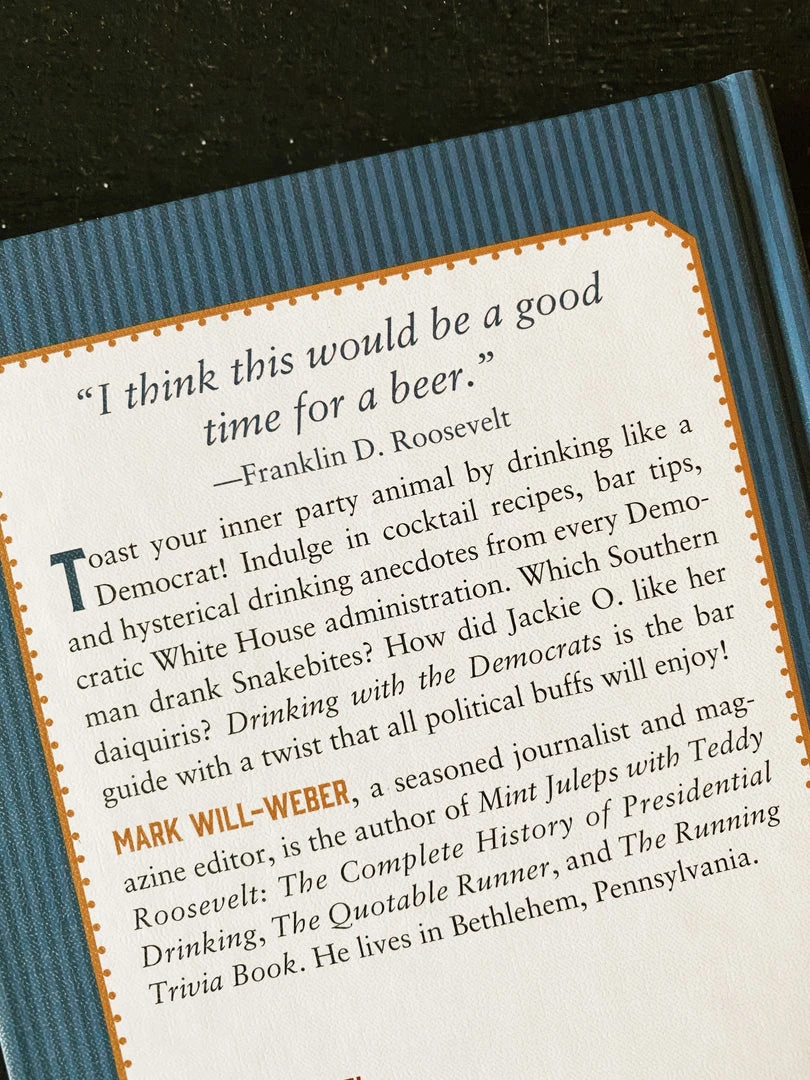 “I think this would be a good
time for a beer.”
—Franklin D. Roosevelt
Toast your inner party animal by drinking like a
Democrat! Indulge in cocktail recipes, bar tips,
and hysterical drinking anecdotes from every Demo-
cratic White House administration. Which Southern
man drank Snakebites? How did Jackie O. like her
daiquiris? Drinking with the Democrats is the bar
guide with a twist that all political buffs will enjoy!
MARK WILL-WEBER, a seasoned journalist and mag-
azine editor, is the author of Mint Juleps with Teddy
Roosevelt: The Complete History of Presidential
Drinking, The Quotable Runner, and The Running
Trivia Book. He lives in Bethlehem, Pennsylvania.